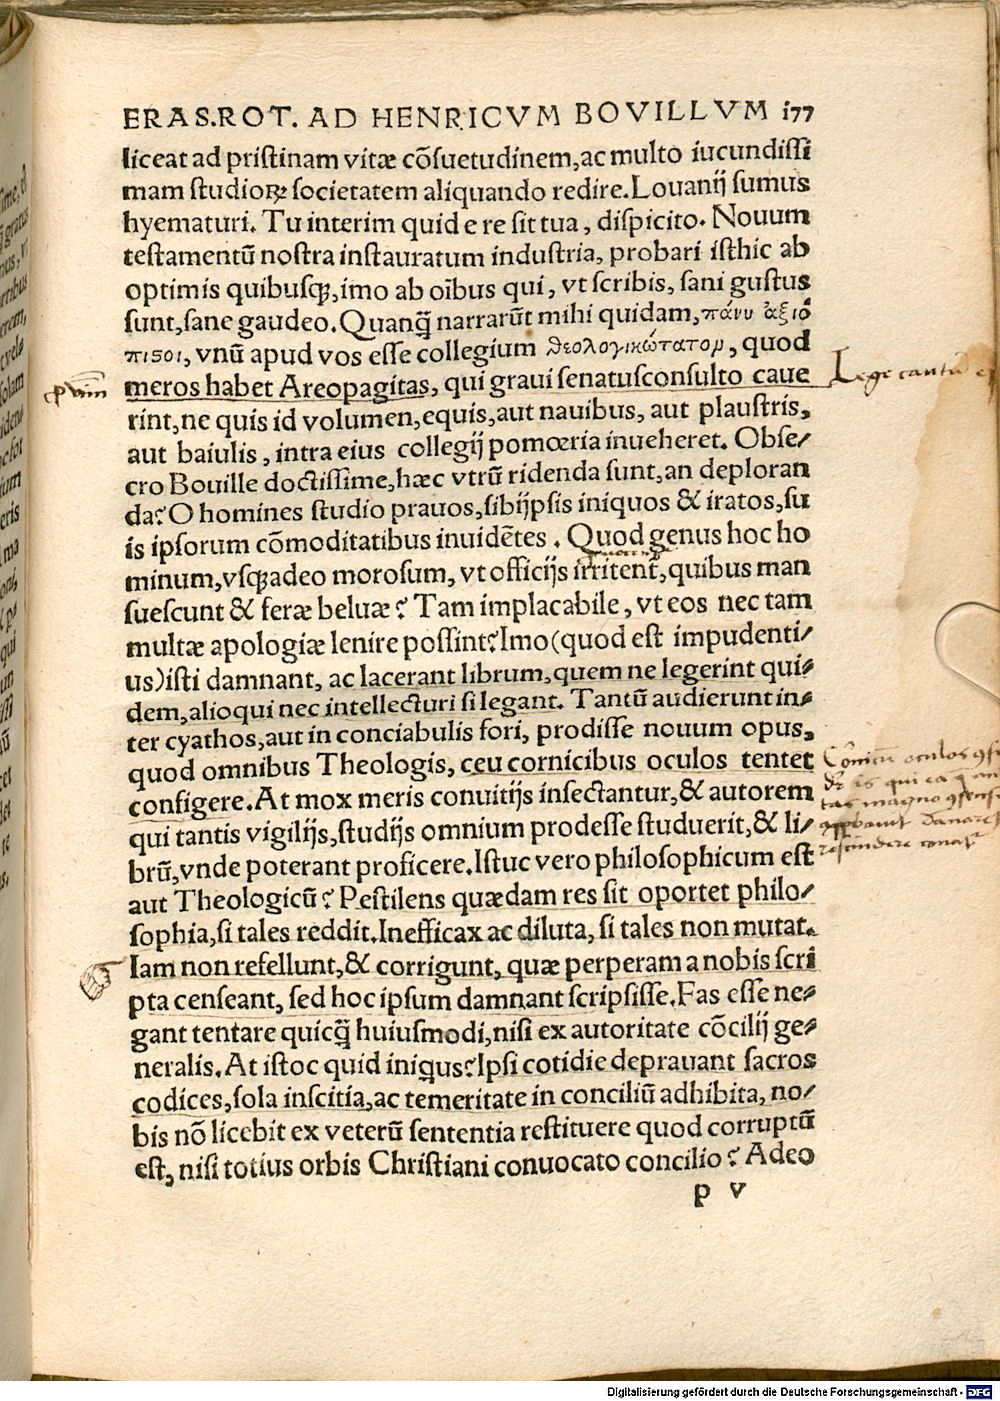 ERAS.ROT. AD HENRICVM BOVILLVM 177
liceat ad pristinam vitæ cõsuetudinem,ac multo iucundissi
mam studioꝝ societatem aliquando redire.Louanij sumus
hyematuri. Tu interim quid e re sit tua, dispicito. Nouum
testamentũ nostra instauratum industria, probari isthic ab
optimis quibusꝗ,imo ab oĩbus qui, vt scribis, sani gustus
sunt,sane gaudeo.Quanꝗ̃ narrarũt mihi quidam,πάνυ ἀξιό
πιϛοι, vnũ apud vos esse collegium θεολογικώτατομ, quod
meros habet Areopagitas, qui graui senatusconsulto caue
Lege cautũ
rint,ne quis id volumen,equis,aut nauibus, aut plaustris,
aut baiulis, intra eius collegij pomœria inueheret. Obse/
cro Bouille doctissime,hæc vtrũ ridenda sunt,an deploran
da? O homines studio prauos,sibijpsis iniquos & iratos,su
is ipsorum cõmoditatibus inuidẽtes. Quod genus hoc ho
minum,vsꝗadeo morosum, vt officijs irritent̃,quibus man
suescunt & feræ beluæ? Tam implacabile, vt eos nec tam
multæ apologiæ lenire possint? Imo(quod est impudenti/
us)isti damnant, ac lacerant librum,quem ne legerint qui/
dem,alioqui nec intellecturi si legant. Tantũ audierunt in/
ter cyathos,aut in conciabulis fori, prodisse nouum opus,
quod omnibus Theologis, ceu cornicibus oculos tentet
configere. At mox meris conuitijs insectantur,& autorem
qui tantis vigilijs,studijs omnium prodesse studuerit,& li/
brũ,vnde poterant proficere. Istuc vero philosophicum est
aut Theologicũ? Pestilens quædam res sit oportet philo/
sophia,si tales reddit.Inefficax ac diluta, si tales non mutat.
Iam non refellunt,& corrigunt, quæ perperam a nobis scri
pta censeant, sed hoc ipsum damnant scripsisse.Fas esse ne/
gant tentare quicꝗ̃ huiusmodi,nisi ex autoritate cõcilij ge/
neralis. At istoc quid iniqus? Ipsi cotidie deprauant sacros
codices,sola inscitia,ac temeritate in conciliũ adhibita, no/
bis nõ licebit ex veterũ sententia restituere quod corruptũ
est, nisi totius orbis Christiani conuocato concilio? Adeo
p v
Digitalisierung gefördert durch die Deutsche Forschungsgemeinschaft - DFG